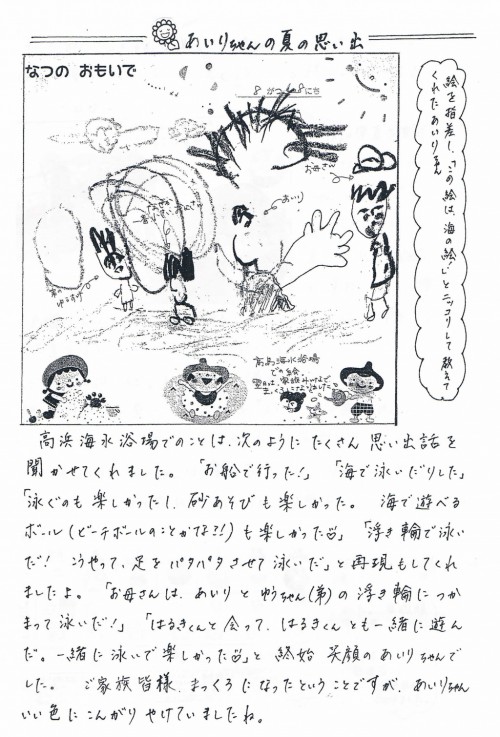 あいりちゃんの夏の思い出
なつの おもいで
8がつ 8にち
お母さん
あいり
絵を指差し、「この絵は、海の絵!」とニッコリして教えて
くれたあいりちゃん
高浜海水浴場
での絵
高浜海水浴場でのことは、次のようにたくさん思い出話を
聞かせてくれました。 「お船で行った!」 「海で泳いだりした」
「泳ぐのも楽しかったし、砂あそびも楽しかった。 海で遊べる
ボール(ビーチボールのことかな?!)も楽しかった」 「浮き輪で泳い
だ! こうやって、足をパタパタさせて泳いだ」と再現もしてくれ
ましたよ。 「お母さんは、あいりとゆうちゃん(弟)の浮き輪につか
まって泳いだ!」 「はるきくんと会って、はるきくんとも一緒に遊ん
だ。一緒に泳いで楽しかった」と終始 笑顔のあいりちゃんで
した。 ご家族皆様、まっくろになったということですが、あいりちゃん
いい色にこんがりやけていましたね。